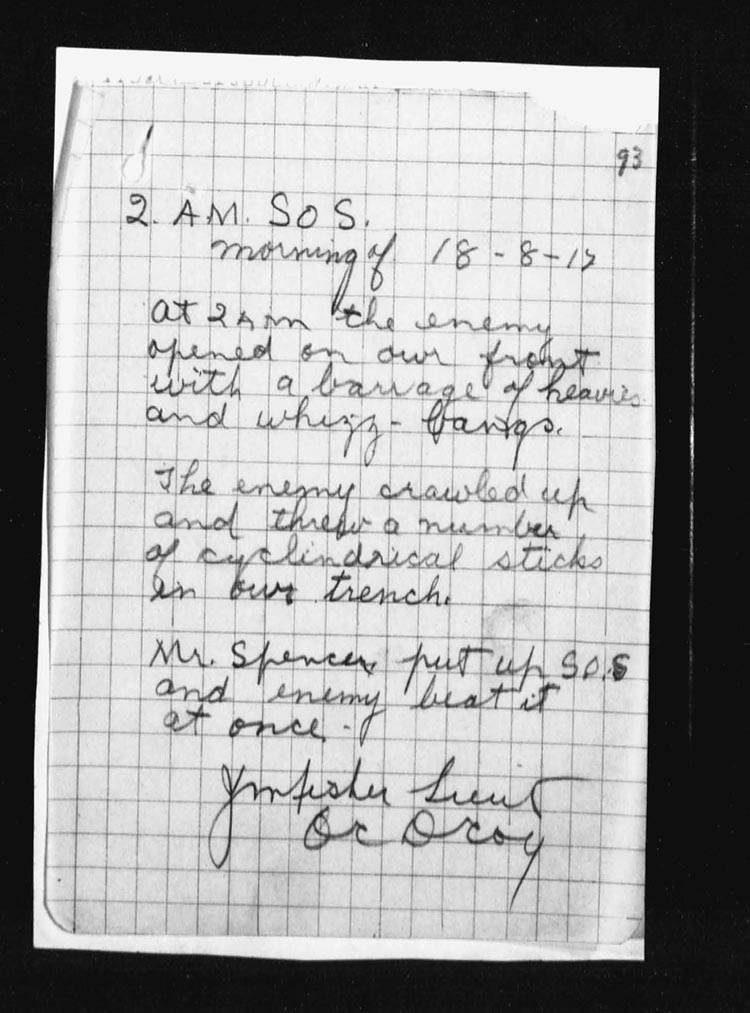 93
2. A.M. S O S.
morning of 18-8-17
At 2 AM the enemy
opened on our front
with a barrage of heavies
and whizz-bangs.
The enemy crawled up
and threw a number
of cyclindrical sticks
in our trench.
Mr. Spencer put up S.O.S
and enemy beat it
at once.
Fisher Lieut
OC D Coy